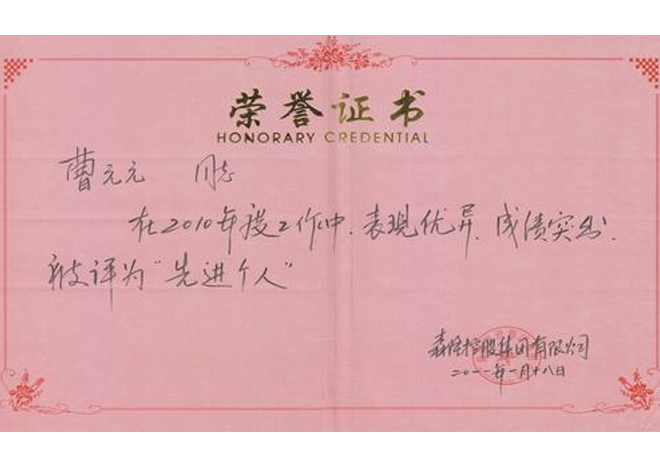 荣誉证书
HONORARY CREDENTIAL
曹元元 同志
在2010年度工作中、表现优异、成绩突出、
被评为“先进个人”
森隆控股集团有限公司
二〇一一年一月十八日